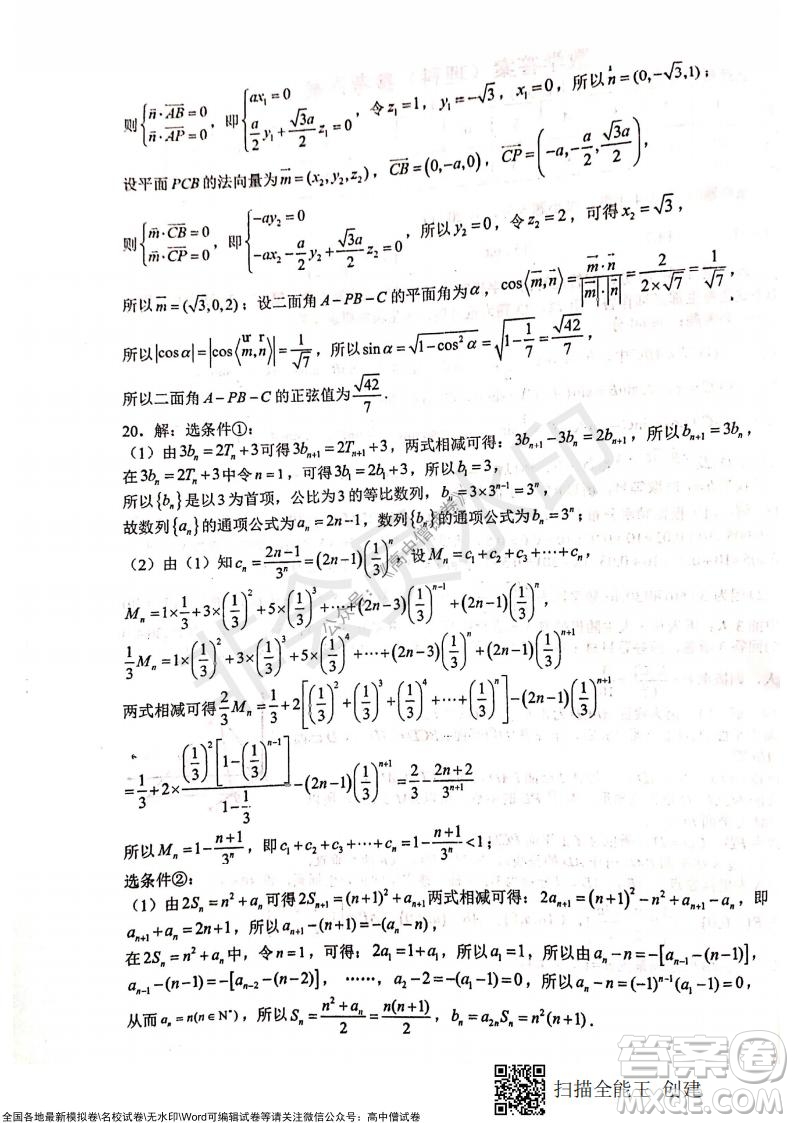 则{n·AB=0, n·AP=0，即{ax₁=0, a/2 y₁+√3a/2 z₁=0，令z₁=1，y₁=-√3，x₁=0，所以n=(0,-√3,1)；
设平面PCB的法向量为m=(x₂,y₂,z₂)，CB=(0,-a,0)，CP=(-a,-a/2,√3a/2)，
则{m·CB=0, m·CP=0，即{-ay₂=0, -ax₂-a/2 y₂+√3a/2 z₂=0，所以y₂=0，令z₂=2，可得x₂=√3，
所以m=(√3,0,2)；设二面角A-PB-C的平面角为α，cos⟨m,n⟩=m·n/|m|·|n|=2/(2×√7)=1/√7，
所以|cosα|=|cos⟨m,n⟩|=1/√7，所以sinα=√(1-cos²α)=√(1-1/7)=√42/7，
所以二面角A-PB-C的正弦值为√42/7.
20．解：选条件①：
（1）由3bₙ=2Tₙ+3可得3bₙ₊₁=2Tₙ₊₁+3，两式相减可得：3bₙ₊₁-3bₙ=2bₙ₊₁，所以bₙ₊₁=3bₙ，
在3bₙ=2Tₙ+3中令n=1，可得3b₁=2b₁+3，所以b₁=3，
所以{bₙ}是以3为首项，公比为3的等比数列，bₙ=3×3ⁿ⁻¹=3ⁿ，
故数列{aₙ}的通项公式为aₙ=2n-1，数列{bₙ}的通项公式为bₙ=3ⁿ；
（2）由（1）知cₙ=(2n-1)/3ⁿ=(2n-1)(1/3)ⁿ，设Mₙ=c₁+c₂+c₃+⋯+cₙ，
Mₙ=1×1/3+3×(1/3)²+5×(1/3)³+⋯+(2n-3)(1/3)ⁿ⁻¹+(2n-1)(1/3)ⁿ
1/3 Mₙ=1×(1/3)²+3×(1/3)³+5×(1/3)⁴+⋯+(2n-3)(1/3)ⁿ+(2n-1)(1/3)ⁿ⁺¹
两式相减可得2/3 Mₙ=1/3+2[(1/3)²+(1/3)³+(1/3)⁴+⋯+(1/3)ⁿ]-(2n-1)(1/3)ⁿ⁺¹
=1/3+2×(1/3)²[1-(1/3)ⁿ⁻¹]/(1-1/3)-(2n-1)(1/3)ⁿ⁺¹=2/3-(2n+2)/3ⁿ⁺¹
所以Mₙ=1-(n+1)/3ⁿ，即c₁+c₂+c₃+⋯+cₙ=1-(n+1)/3ⁿ<1；
选条件②：
（1）由2Sₙ=n²+aₙ可得2Sₙ₊₁=(n+1)²+aₙ₊₁两式相减可得：2aₙ₊₁=(n+1)²-n²+aₙ₊₁-aₙ，即
aₙ₊₁+aₙ=2n+1，所以aₙ₊₁-(n+1)=-(aₙ-n)，
在2Sₙ=n²+aₙ中，令n=1，可得：2a₁=1+a₁，所以a₁=1，所以由aₙ-n=-[aₙ₋₁-(n-1)]，
aₙ₋₁-(n-1)=-[aₙ₋₂-(n-2)]，……，a₂-2=-(a₁-1)，得aₙ-n=(-1)ⁿ⁻¹(a₁-1)=0，
从而aₙ=n(n∈N*)，所以Sₙ=(n²+aₙ)/2=n(n+1)/2，bₙ=a₂ₙSₙ=n²(n+1)．
非会员水印
公众号：《高中僧试卷》
答案圈
扫描全能王 创建
全国各地最新模拟卷\名校试卷\无水印\Word可编辑试卷等请关注微信公众号：高中僧试卷